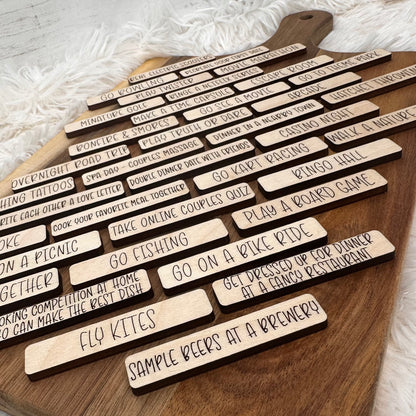 RIDE ELECTRIC SCOOTERS
PROPOSE YOUR FIRST DATE
MOVIE MARATHON
GO BOWLING
PLAY TWISTER
BINGE A NETFLIX SERIES
ESCAPE ROOM
GO TO THEME PARK
MINIATURE GOLF
MAKE A TIME CAPSULE
GO SEE A MOVIE
ARCADE
HATCHET THROWING
BONFIRE & SMORES
PLAY TRUTH OR DARE
DINNER IN A NEARBY TOWN
OVERNIGHT ROAD TRIP
SPA DAY
COUPLES MASSAGE
DOUBLE DINNER DATE WITH FRIENDS
CASINO NIGHT
WALK A NATURE
TATTOOS
WRITE EACH OTHER A LOVE LETTER
COOK YOUR FAVORITE MEAL TOGETHER
GO KART RACING
BINGO HALL
TAKE ONLINE COUPLES QUIZ
PLAY A BOARD GAME
ON A PICNIC
GO FISHING
GO ON A BIKE RIDE
GET DRESSED UP FOR DINNER
AT A FANCY RESTAURANT
COOKING COMPETITION AT HOME
CAN MAKE THE BEST DISH
FLY KITES
SAMPLE BEERS AT A BREWERY